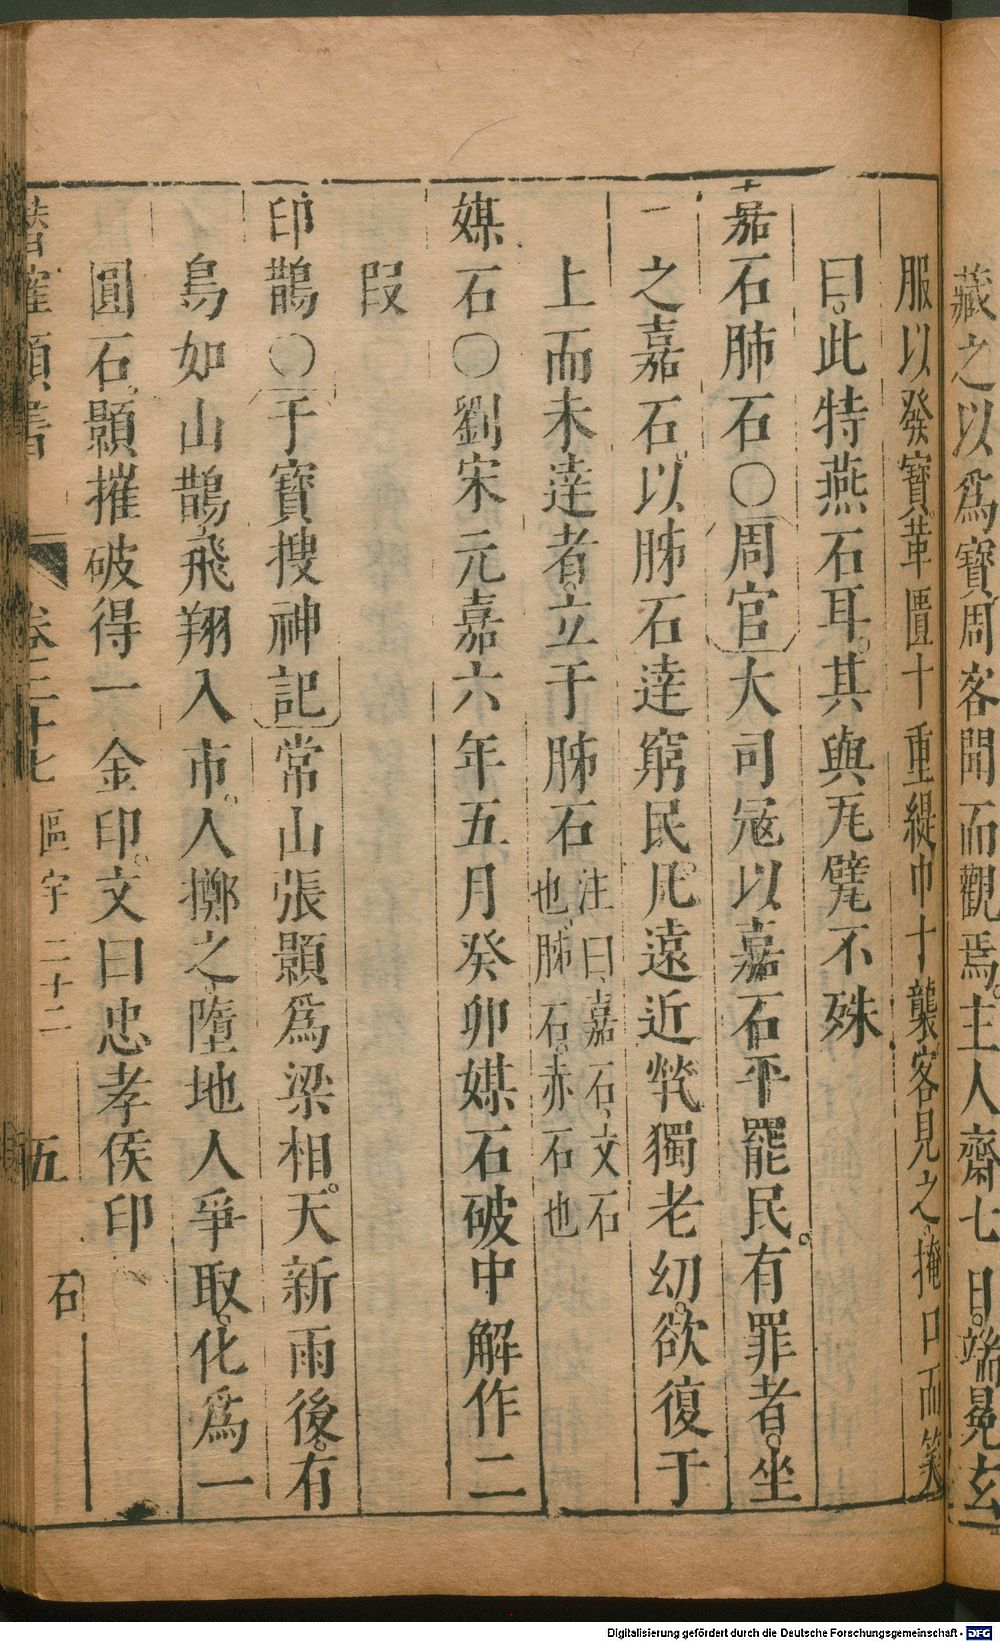 藏之以爲寶周客聞而觀焉。主人齋七日。端冕玄
服以發寶。革匱十重緹巾十襲客見之。掩口而笑
曰。此特燕石耳。其與瓦甓不殊
嘉石肺石〇周官大司冦以嘉石平罷民。有罪者。坐
之嘉石。以肺石達窮民。凡遠近煢獨老幼。欲復于
上而未達者。立于肺石注曰、嘉石、文石
也、肺石。赤石也
媒石〇劉宋元嘉六年五月癸卯媒石破中解作二
段
印鵲〇于寶搜神記常山張顥爲梁相。天新雨後。有
鳥如山鵲飛翔入市。人擲之墮地人爭取。化爲一
圓石。顥摧破得一金印。文曰忠孝侯印
類書
卷三十七 區宇二十二 五 石
Digitalisierung gefördert durch die Deutsche Forschungsgemeinschaft - DFG